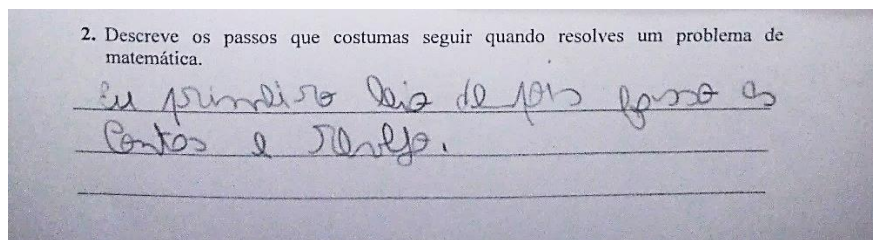 2. Descreve os passos que costumas seguir quando resolves um problema de
matemática.
Eu primeiro leio de pois fasso as
contas e revejo.